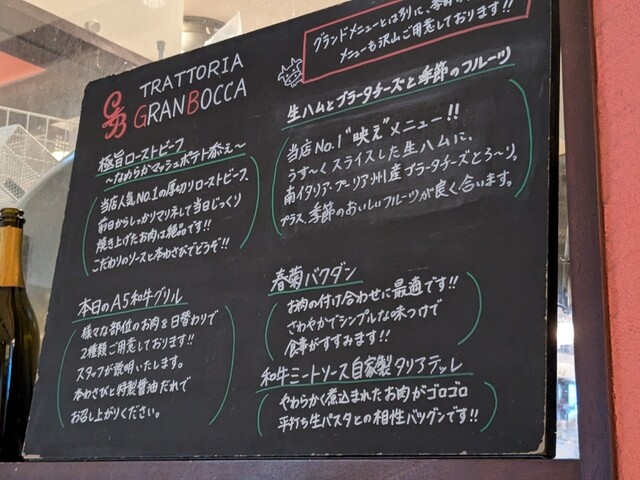 TRATTORIA
GRANBOCCA
極旨ローストビーフ
〜なめらかマッシュポテト添え〜
当店人気No.1の厚切りローストビーフ、
前日からしっかりマリネして当日じっくり
焼き上げたお肉は絶品です!!
こだわりのソースと本わさびでどうぞ!!
本日のA5和牛グリル
様々な部位のお肉を日替わりで
2種類ご用意しております!!
スタッフが説明いたします。
本わさびと特製醤油だれで
お召し上がりください。
グランドメニューとは別に、季節の
メニューも沢山ご用意しております!!
生ハムとブラータチーズと季節のフルーツ
当店No.1"映え"メニュー!!
うす〜くスライスした生ハムに、
南イタリア・プーリア州産ブラータチーズとろ〜り。
プラス、季節のおいしいフルーツが良く合います。
春菊バクダン
お肉の付け合わせに最適です!!
さわやかでシンプルな味つけで
食事がすすみます!!
和牛ミートソース自家製タリアテッレ
やわらかく煮込まれたお肉がゴロゴロ
平打ち生パスタとの相性バツグンです!!